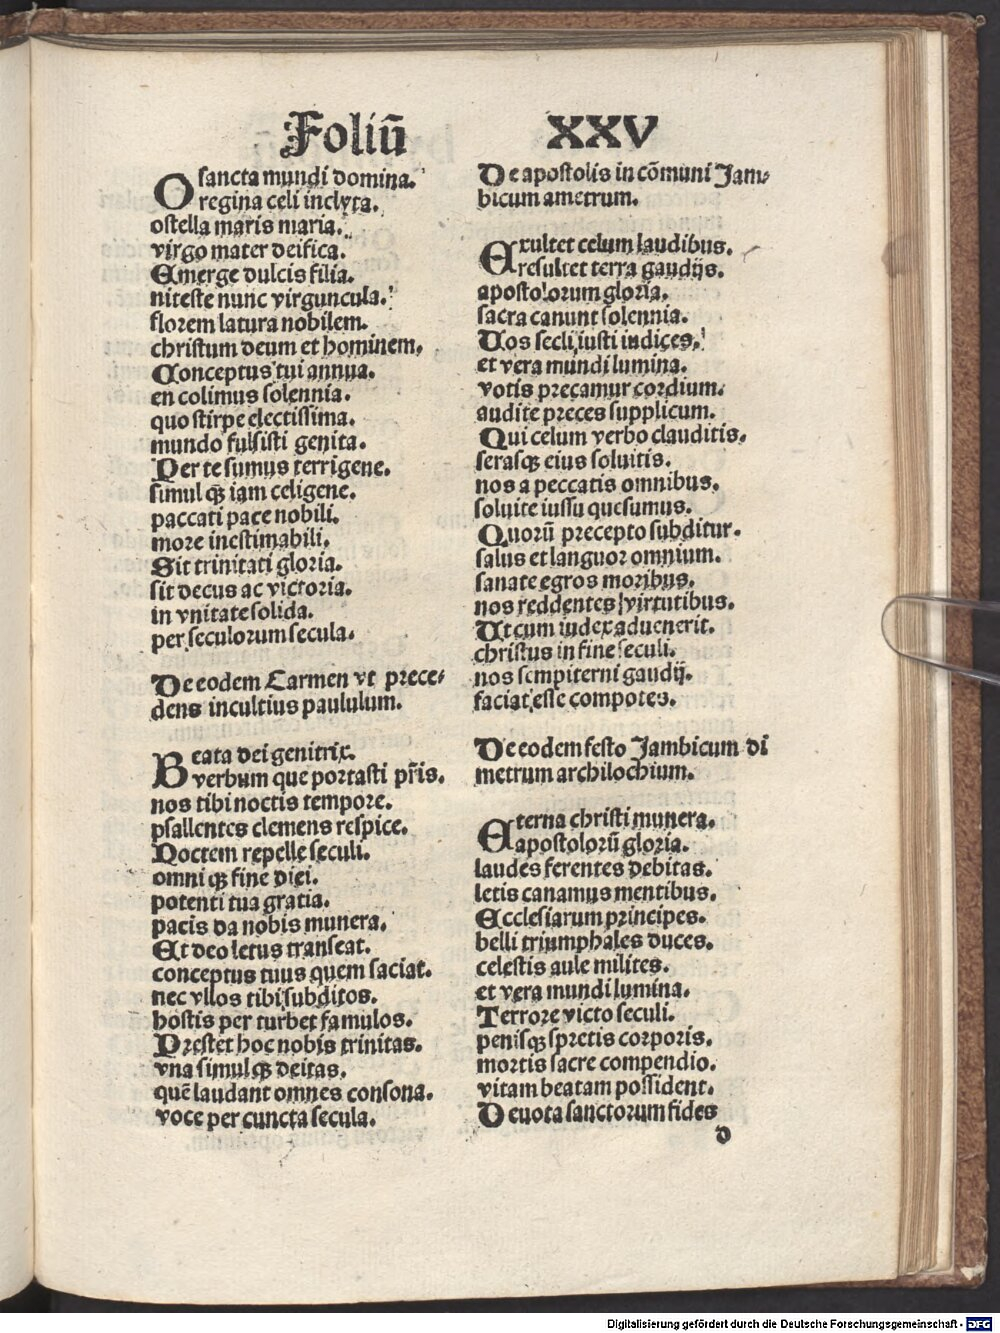 Foliū XXV
O sancta mundi domina.
regina celi inclyta.
o stella maris maria.
virgo mater deifica.
Emerge dulcis filia.
niteste nunc virguncula.
florem latura nobilem.
christum deum et hominem.
Conceptus tui annua.
en colimus solennia.
quo stirpe electissima.
mundo fulsisti genita.
Per te sumus terrigene.
simul qʒ iam celigene.
paccati pace nobili.
more inestimabili.
Sit trinitati gloria.
sit decus ac victoria.
in vnitate solida.
per seculorum secula.
De eodem Carmen vt prece-
dens incultius paululum.
Beata dei genitrix.
verbum que portasti pr̄is.
nos tibi noctis tempore.
psallentes clemens respice.
Noctem repelle seculi.
omni qʒ fine diei.
potenti tua gratia.
pacis da nobis munera.
Et deo letus transeat.
conceptus tuus quem faciat.
nec vllos tibi subditos.
hostis per turbet famulos.
Prestet hoc nobis trinitas.
vna simul qʒ deitas.
quē laudant omnes consona.
voce per cuncta secula.
De apostolis in cōmuni Jam-
bicum ametrum.
Exultet celum laudibus.
resultet terra gaudijs.
apostolorum gloria.
sacra canunt solennia.
Vos secli iusti iudices.
et vera mundi lumina.
votis precamur cordium.
audite preces supplicum.
Qui celum verbo clauditis.
serasqʒ eius soluitis.
nos a peccatis omnibus.
soluite iussu quesumus.
Quorū precepto subditur.
salus et languor omnium.
sanate egros moribus.
nos reddentes virtutibus.
Ut cum iudex aduenerit.
christus in fine seculi.
nos sempiterni gaudij.
faciat esse compotes.
De eodem festo Jambicum di
metrum archilochium.
Eterna christi munera.
apostolorū gloria.
laudes ferentes debitas.
letis canamus mentibus.
Ecclesiarum principes.
belli triumphales duces.
celestis aule milites.
et vera mundi lumina.
Terrore victo seculi.
penisqʒ spretis corporis.
mortis sacre compendio.
vitam beatam possident.
Deuota sanctorum fides
d
Digitalisierung gefördert durch die Deutsche Forschungsgemeinschaft - DFG